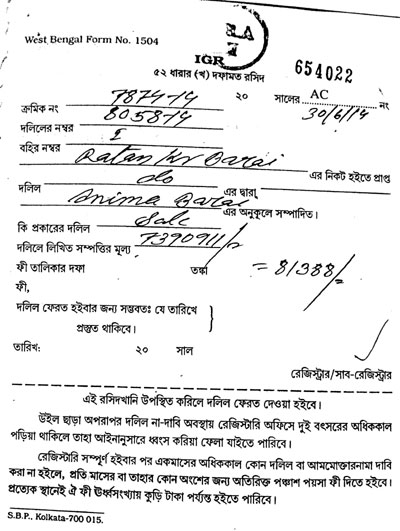 West Bengal Form No. 1504
IGR
৫২ ধারার (খ) দফামত রসিদ
654022
7874-14 ২০ সালের AC নং
ক্রমিক নং 8058-14 30/6/14
দলিলের নম্বর I
বহির নম্বর Ratan Kr Barai এর নিকট হইতে প্রাপ্ত
দলিল do এর দ্বারা
Anima Barai এর অনুকূলে সম্পাদিত।
কি প্রকারের দলিল Sale
দলিলে লিখিত সম্পত্তির মূল্য 7390911/-
ফী তালিকার দফা তঙ্কা = 81388/-
ফী,
দলিল ফেরত হইবার জন্য সম্ভবতঃ যে তারিখে
প্রস্তুত থাকিবে।
তারিখ: ২০ সাল
রেজিস্ট্রার/সাব-রেজিস্ট্রার
এই রসিদখানি উপস্থিত করিলে দলিল ফেরত দেওয়া হইবে।
উইল ছাড়া অপরাপর দলিল না-দাবি অবস্থায় রেজিস্টারি অফিসে দুই বৎসরের অধিককাল
পড়িয়া থাকিলে তাহা আইনানুসারে ধ্বংস করিয়া ফেলা যাইতে পারিবে।
রেজিস্টারি সম্পূর্ণ হইবার পর একমাসের অধিককাল কোন দলিল বা আমমোক্তারনামা দাবি
করা না হইলে, প্রতি মাসের বা তাহার কোন অংশের জন্য অতিরিক্ত পঞ্চাশ পয়সা ফী দিতে হইবে।
প্রত্যেক স্থানেই ঐ ফী ঊর্ধ্বসংখ্যায় কুড়ি টাকা পর্যন্ত হইতে পারিবে।
S.B.P., Kolkata-700 015.